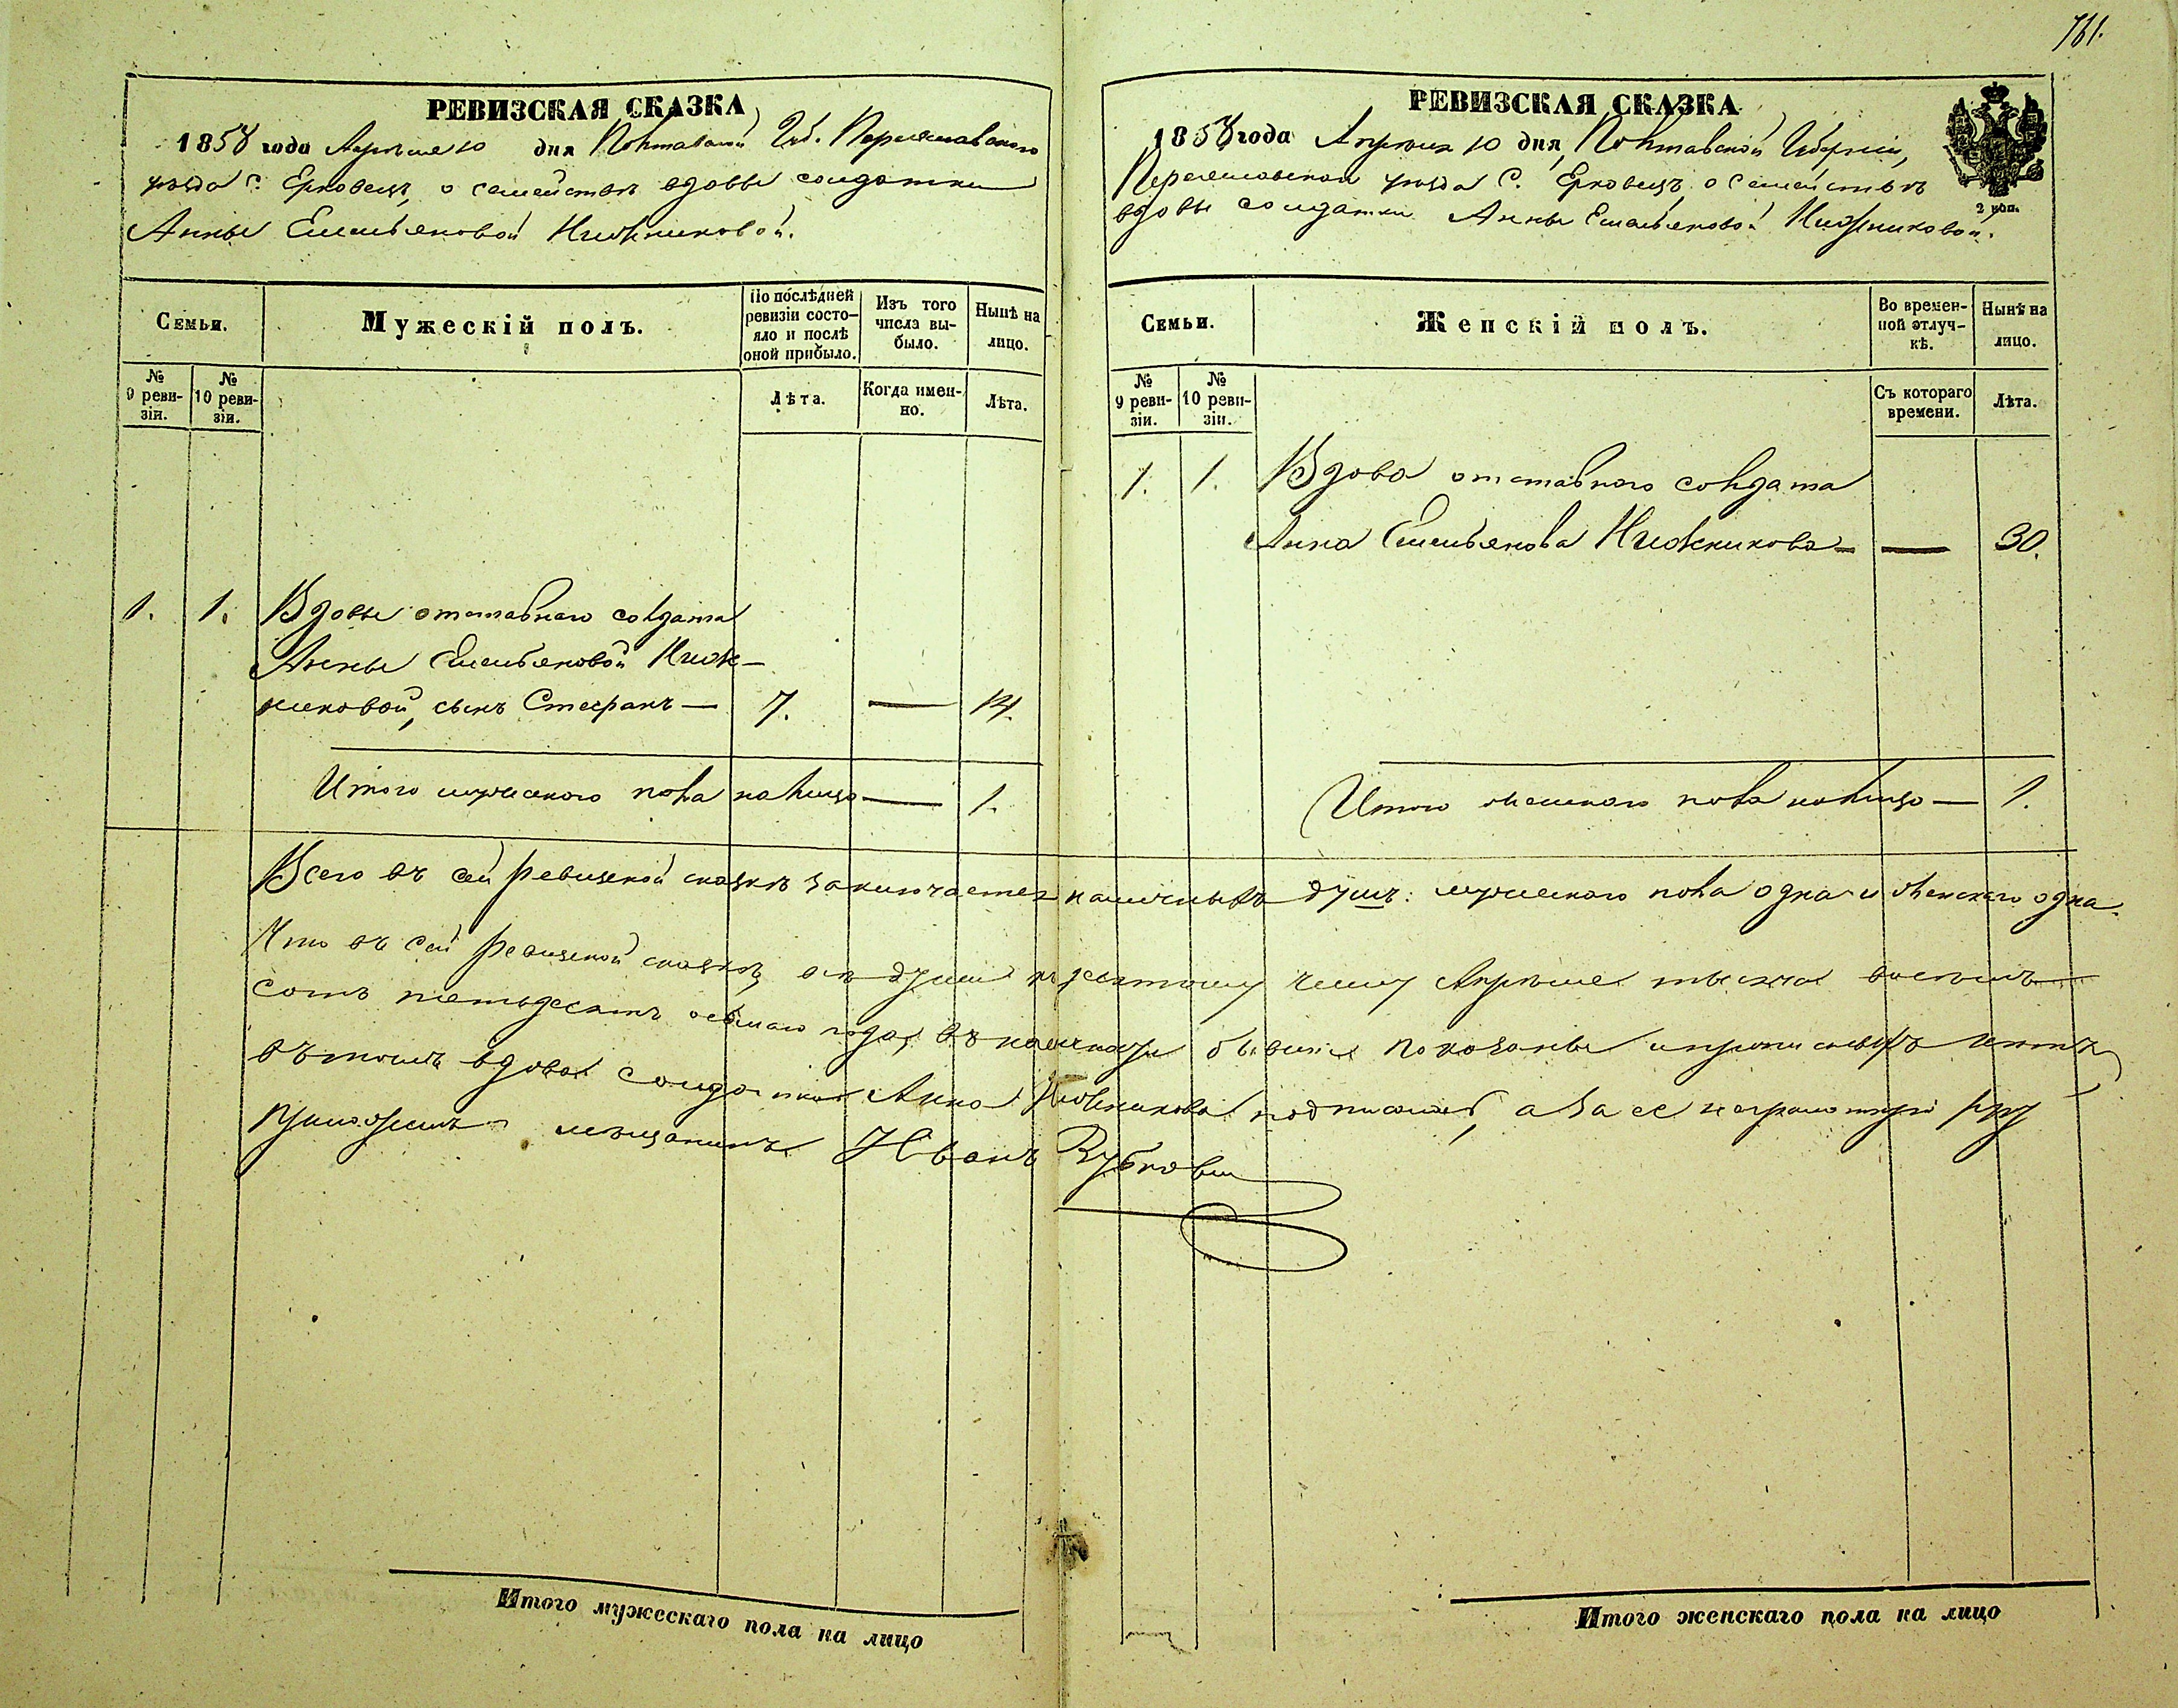 761.
РЕВИЗСКАЯ СКАЗКА
1858 года Апреля 10 дня Полтавской Губ. Переяславского
уезда с. Ерковецъ, о семействе вдовы солдатки
Анны Емельяновой Нижниковой.
Семьи.
Мужескій полъ.
По послѣдней
ревизіи состо-
яло и послѣ
оной прибыло.
Изъ того
числа вы-
было.
Нынѣ на
лицо.
№
9 реви-
зіи.
№
10 реви-
зіи.
Лѣта.
Когда имен-
но.
Лѣта.
1. 1. Вдовы отставнаго солдата
Анны Емельяновой Ниж-
никовой, сынъ Стефанъ — 7. — 14.
Итого мужескаго пола на лицо — 1.
РЕВИЗСКАЯ СКАЗКА
1858 года Апреля 10 дня, Полтавской Губерніи,
Переяславской уезда С. Ерковецъ о семействе
вдовы солдатки Анны Емельяновой Нижниковой.
2 коп.
Семьи.
Женскій полъ.
Во времен-
ной отлуч-
кѣ.
Нынѣ на
лицо.
№
9 реви-
зіи.
№
10 реви-
зіи.
Съ котораго
времени.
Лѣта.
1. 1. Вдова отставнаго солдата
Анна Емельянова Нижникова — — 30.
Итого женскаго пола на лицо — 1.
Всего въ сей ревизской сказкѣ заключается наличныхъ душъ: мужескаго пола одна и женскаго одна.
Что въ сей ревизской сказкѣ всѣ души къ десятому числу Апреля тысяча восемь
сотъ пятьдесятъ осьмаго года, въ наличности бывшія показаны и прописныхъ нетъ
въ томъ вдова солдатка Анна Нижникова подписалась, а за ее неграмотную руку
приложилъ мещанинъ Иванъ
Итого мужескаго пола на лицо
Итого женскаго пола на лицо